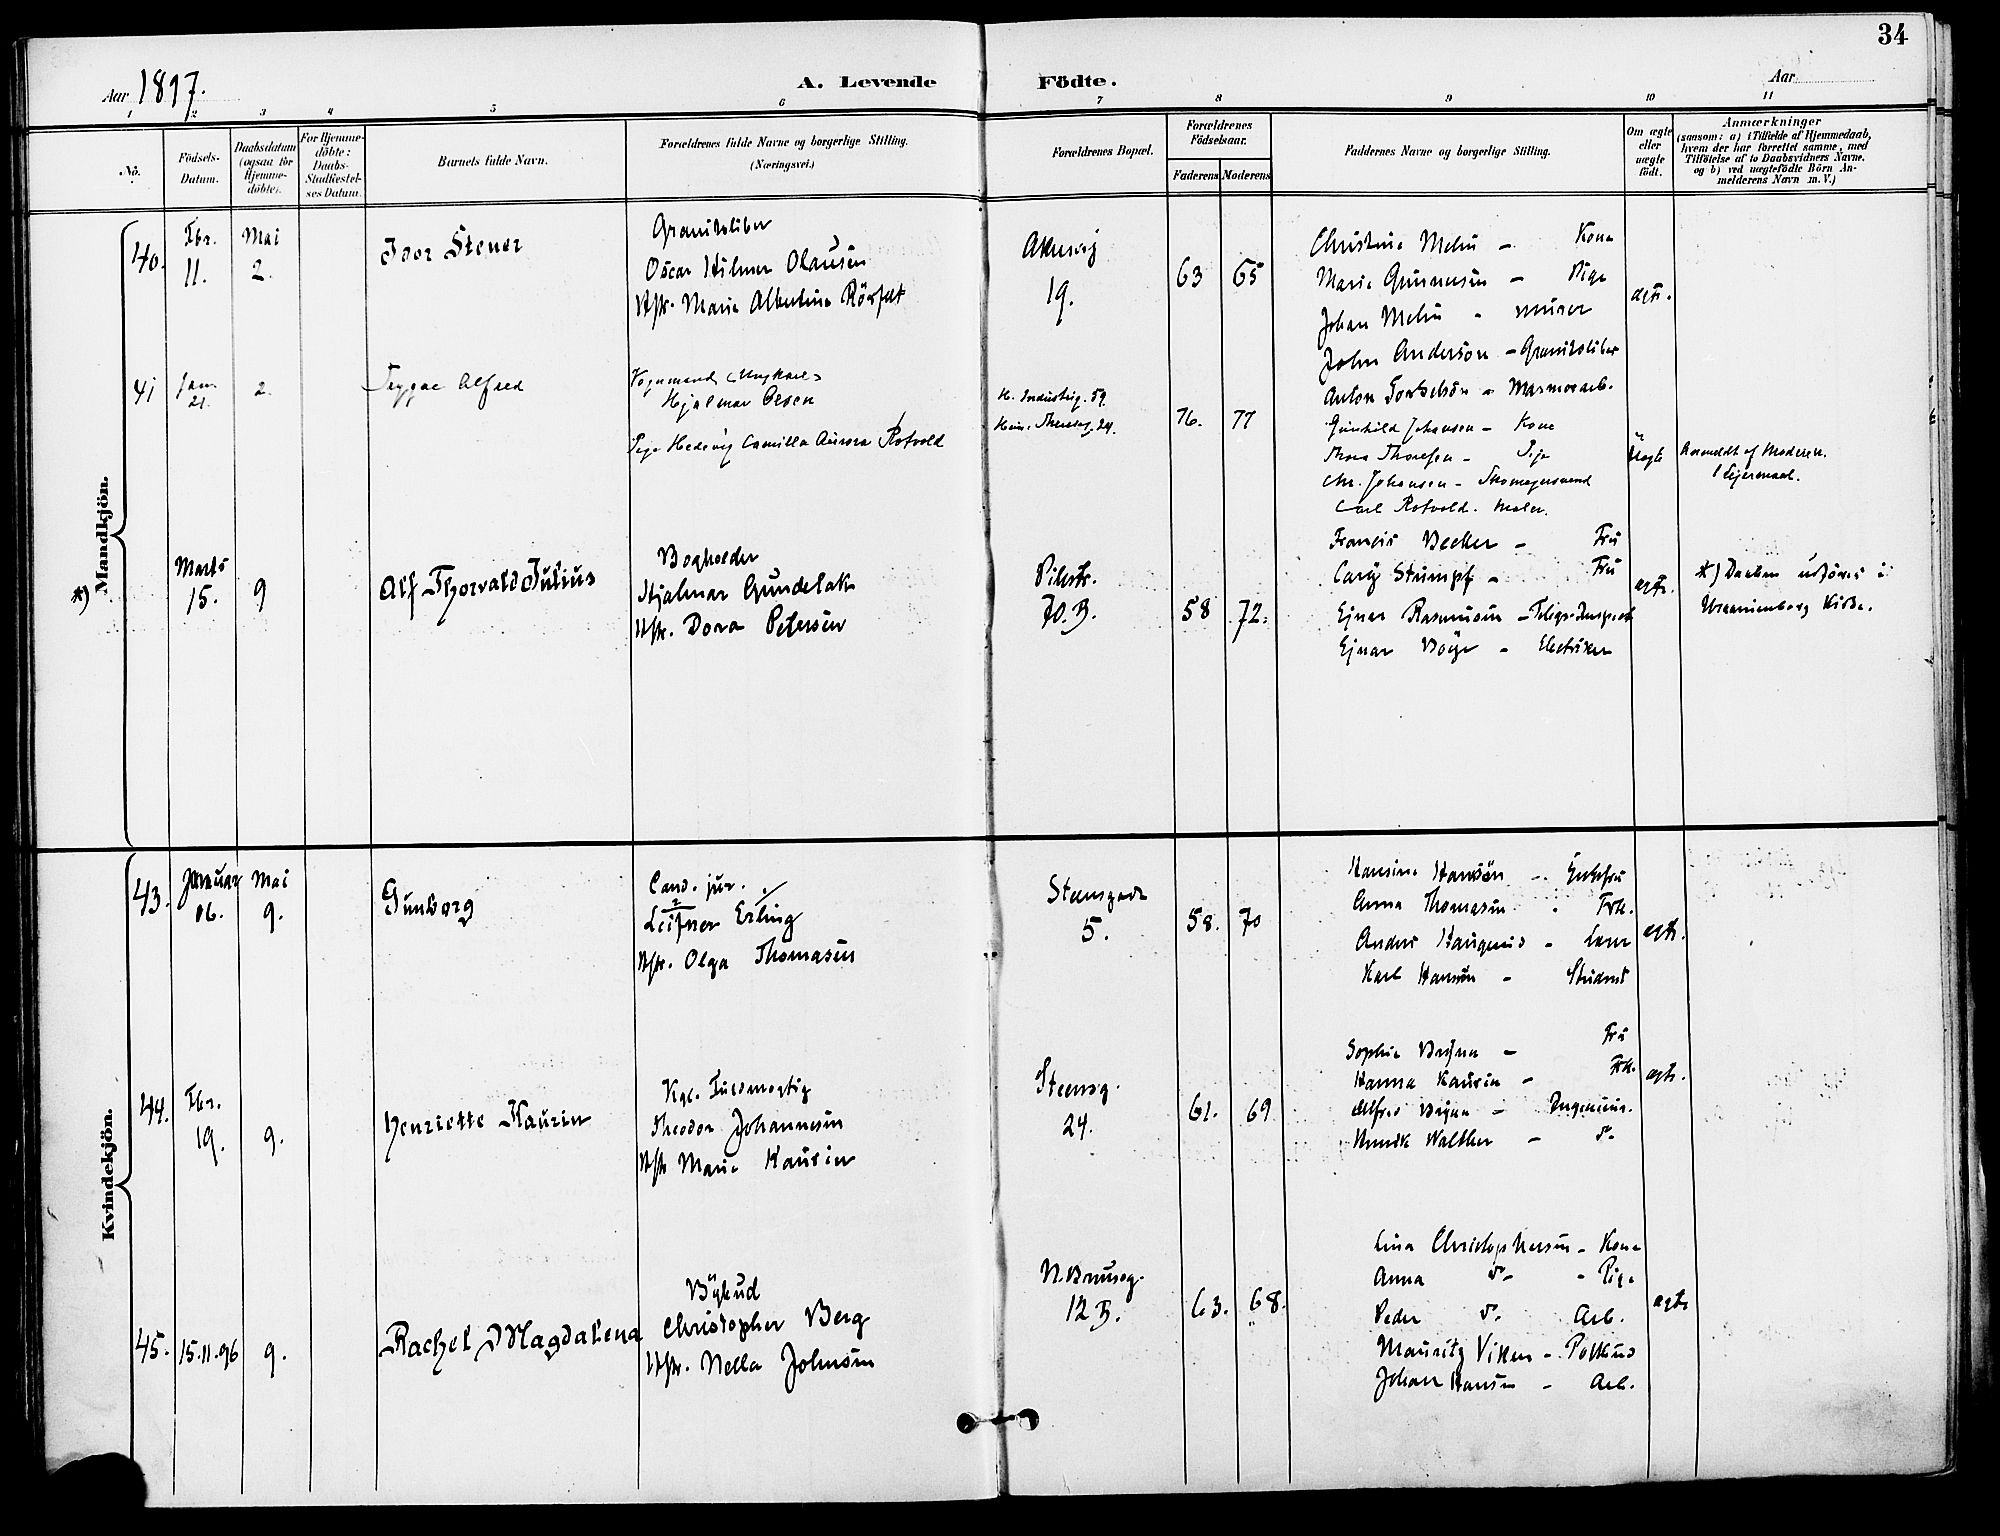 34
Aar 1897.
A. Levende Födte.
Aar
1 2 3 4 5 6 7 8 9 10 11
No.
Födsels-Datum.
Daabsdatum (ogsaa for Hjemme-döbte).
For Hjemme-döbte: Daabs-Stadfæstel-ses Datum.
Barnets fulde Navn.
Forældrenes fulde Navne og borgerlige Stilling.
(Næringsvei.)
Forældrenes Bopæl.
Forældrenes Födselsaar.
Faderens Moderens
Faddernes Navne og borgerlige Stilling.
Om ægte eller uægte födt.
Anmærkninger
(saasom: a) i Tilfælde af Hjemmedaab,
hvem der har forrettet samme, med
Tilföielse af to Daabsvidners Navne.
og b) ved uægtefödte Börn An-
melderens Navn m. V.)
Mandkjön.
40. Fbr. 11. Mai 2.
Ivar Stener
Granitsliber
Oscar Hilmar Olausen
Hstr. Marie Albertine
Akersvej
19.
63 65
Christine Melin - Kone
Marie Gunnersen - Pige
Johan Melin - murer
John Anderson - Granitsliber
Anton - Marmorarb.
ægte.
41 Jan. 21. 2.
Trygve Alfred
Vognmand
Hjalmar Olsen
Pige Hedevig Camilla Aurora Rotvold
H. Industrig. 59.
Hein. Theresesg. 24.
76. 77
Gunhild Johansen - Kone
Thora Thoresen - Pige
Chr. Johansen - Skomagersvend
Carl Rotvold. Maler.
Uægte
Anmeldt af Moderen.
1 Leiermaal.
*)
Marts 15. 9
Alf Thorvald Julius
Bogholder
Hjalmar Gundelak
Hstr. Dora Petersen
Pilestr.
70.B.
58 72.
Francis Becker - Fru
Stumpf - Fru
Ejnar Rasmussen - Telegr. Inspect
Ejnar - Elektriker
ægte.
*) Daaben udföres i
Uranienborg Kirke.
Kvindekjön.
43. Januar 16. Mai 9.
Gunborg
Cand. jur.
Erling
Hstr. Olga Thomasen
Steensgade
5.
58. 70
Hansine Hansen - Enkefru
Anna Thomasen - Frk.
Anders Haugerud - Lærer
Karl Hansen - Student
ægte.
44. Fbr. 19. 9.
Henriette Kaurin
Kgl. Fuldmægtig
Theodor Johannesen
Hstr. Marie Kaurin
Steensg.
24.
61. 69
Sophie Bryhn - Fru
Hanna Kaurin - Frk.
Alfred Bryhn - Ingeniør.
Henrik Walther - do
ægte.
45. 15.11.96 9.
Rachel Magdalena
Bybud
Christopher Berg
Hstr. Nella Johnsen
N. Bruusg.
12 B.
63. 68.
Lina Christophersen - Kone
Anna do - Pige
Peder do Arb.
Mauritz Viken - Postbud
Johan Hansen - Arb.
ægte